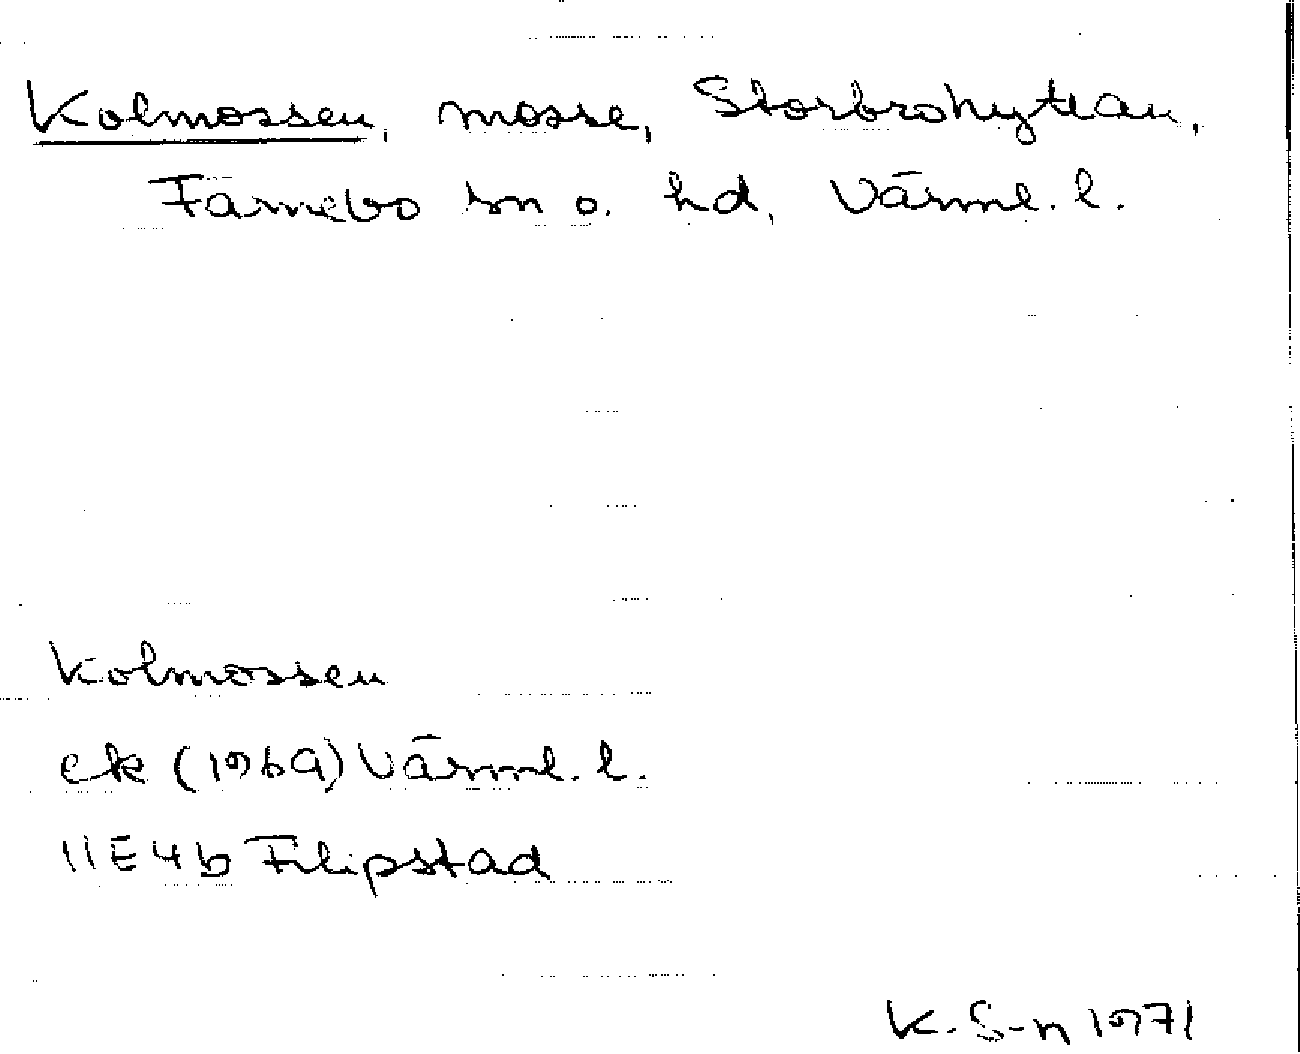 Kolmossen, mosse, Storbrohyttan,
Färnebo sn o. hd, Värml. l.
Kolmossen
ek (1969) Värml. l.
11E4b Filipstad
K. S-n 1971